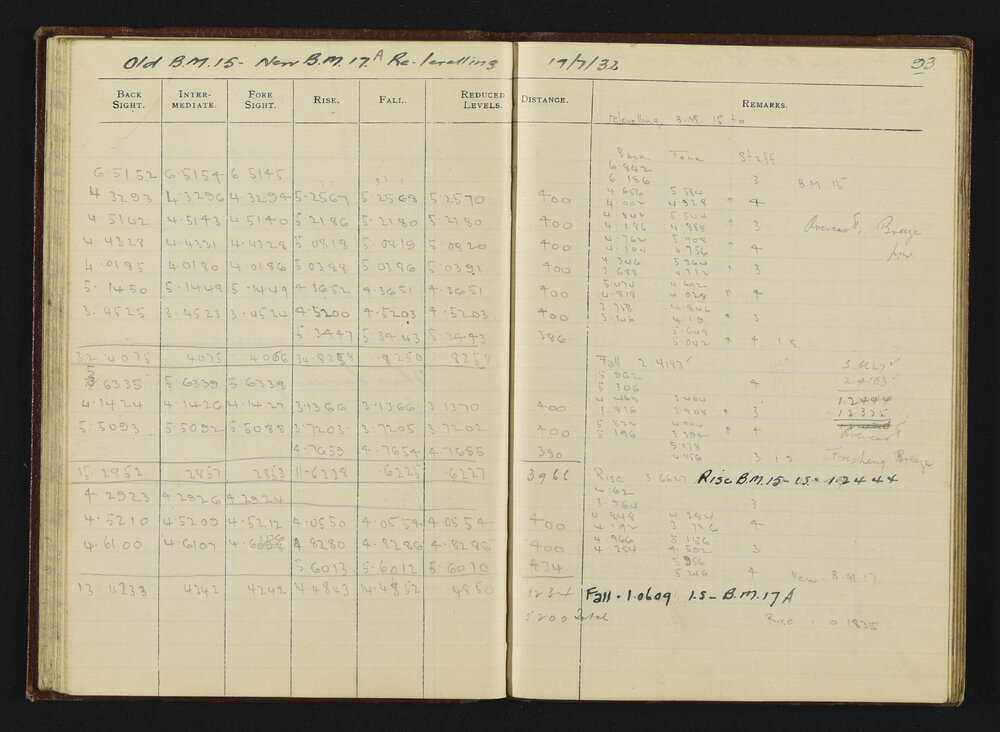 Old B.M. 15 - New B.M. 17.A Re-levelling 19/7/32 93
BACK SIGHT. INTER-MEDIATE. FORE SIGHT. RISE. FALL. REDUCED LEVELS. DISTANCE. REMARKS.
relevelling, B.M. 15 to
Back Fore Staff
6.842
6.5152 6.5154 6.5145 6.186 3 B.M. 15
4.656 5.584
4.3293 4.3296 4.3294 5.2567 5.2568 5.2570 400 4.002 4.928 " 4
4.842 5.544
4.5142 4.5143 4.5140 5.2186 5.2180 5.2180 400 4.186 4.888 " 3 Overcast, Breeze
4.762 5.408
4.4328 4.4331 4.4328 5.0818 5.0819 5.0820 400 4.104 4.756 " 4
4.346 5.364
4.0185 4.0180 4.0186 5.0388 5.0386 5.0391 400 3.688 4.712 " 3
5.474 4.692
5.1450 5.1448 5.1449 4.3652 4.3651 4.3651 400 4.818 " 4
3.758 4.846
3.4525 3.4523 3.4524 4.5200 4.5203 4.5203 400 3.146 4.19 " 3
5.648
5.3447 5.3443 5.3443 386 5.042 " 4 I.S.
32.4075 4075 4066 34.8258 .8250 8258 Fall 2.4183 3.6627
5.962 2.4183
5.6335 5.6339 5.6338 5.306 4
4.468 3.464 1.2444
4.1424 4.1426 4.1427 3.1366 3.1366 3.1370 400 3.816 2.808 " 3 1.2335
5.822 4.044
5.5093 5.5092 5.5088 3.7203 3.7205 3.7202 400 5.196 3.394 " 4 Overcast
5.078
4.7659 4.7654 4.7655 380 4.456 3 I.S. Freshening Breeze
15.2852 2857 2853 11.6228 .6225 .6227 3966 Rise 3.6627 Rise B.M. 15 - I.S. = 1.2444
4.62
4.2923 4.2926 4.2924 3.964 3
4.848 4.384
4.5210 4.5209 4.5212 4.0550 4.0554 4.0554 400 4.192 3.726 4
4.966 5.156
4.6100 4.6107 4.8280 4.8286 4.8286 400 4.254 4.502 3
5.956
5.6013 5.6012 5.6010 434 5.246 4 New B.M. 17
13.4233 4242 4242 14.4843 14.4852 4850 1234 Fall .1.0609 I.S - B.M. 17 A
5200 Total Rise = 0.1835